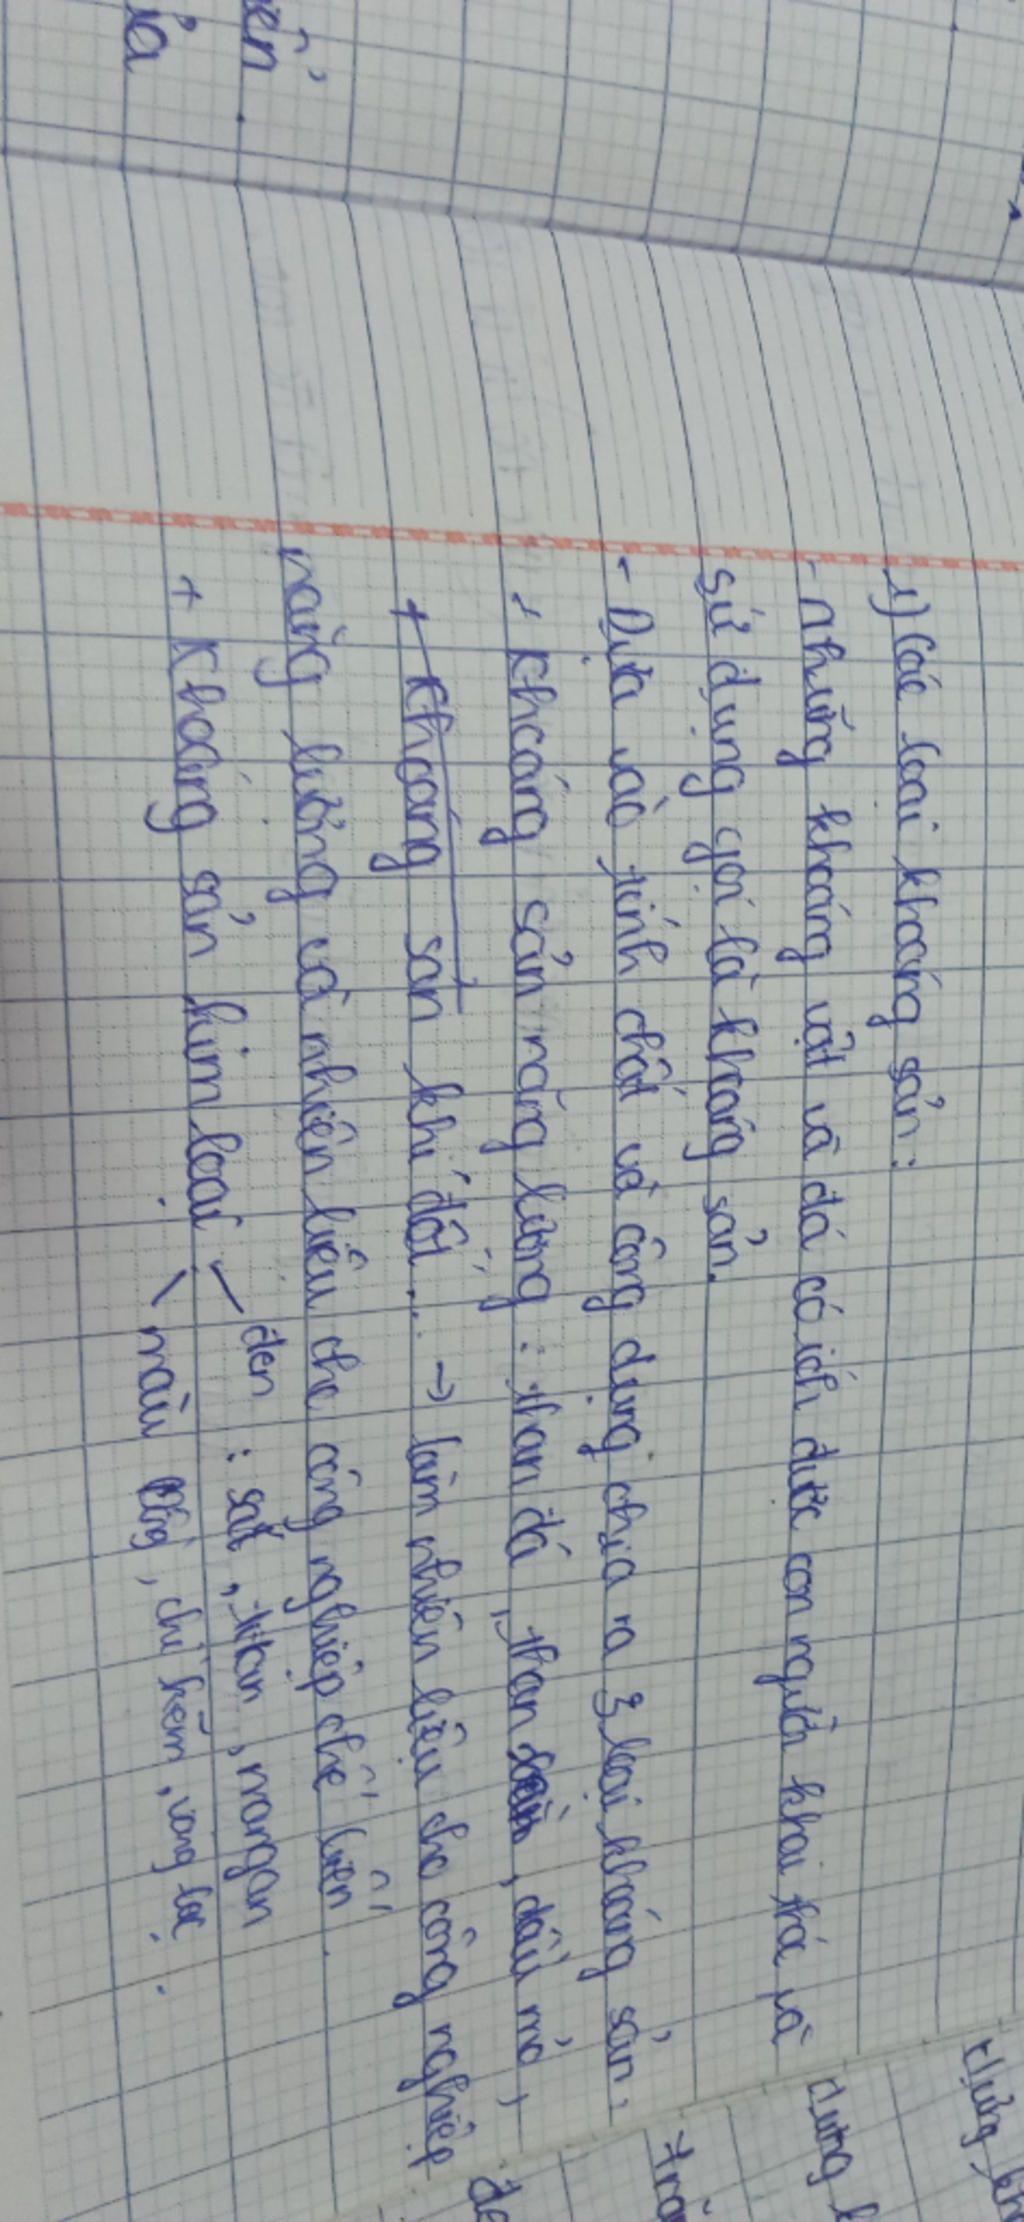 1) Các loại khoáng sản :
- Những khoáng vật và đá có ích được con người khai thác và
sử dụng gọi là khoáng sản.
- Dựa vào tính chất và công dụng chia ra 3 loại khoáng sản.
+ Khoáng sản năng lượng : than đá, than bùn, dầu mỏ,
+ Khoáng sản khí đốt... → làm nhiên liệu cho công nghiệp
năng lượng và nhiên liệu cho công nghiệp chế biến.
+ Khoáng sản kim loại
đen : sắt, titan, mangan
màu đồng, chì kẽm, vàng bạc.